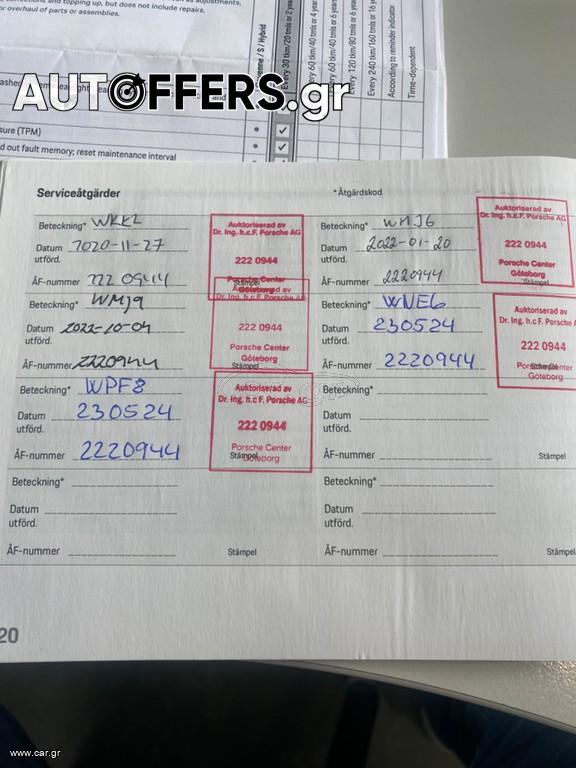 or overhaul of parts or assemblies.
topping up, but does not include repairs.
Cayenne / S / Hybrid
Every 30 tkm/20 tmls or 2 years
Every 60 tkm/40 tmls or 4 years
Every 60 tkm/40 tmls or 6 years
Every 120 tkm/80 tmls or 6 years
Every 240 tkm/160 tmls or 16
According to reminder indicator
Time-dependent
AUTOFFERS.gr
sure (TPM)
d out fault memory; reset maintenance interval
Serviceåtgärder
*Åtgärdskod
Beteckning* WKK2
Datum 2020-11-27
utförd.
ÅF-nummer 222 0944
Stämpel
Auktoriserad av
Dr. Ing. h.c.F. Porsche AG
222 0944
Porsche Center
Göteborg
Beteckning* WMJ6
Datum 2022-01-20
utförd.
ÅF-nummer 2220944
Stämpel
Auktoriserad av
Dr. Ing. h.c.F. Porsche AG
222 0944
Porsche Center
Göteborg
Beteckning* WMJ9
Datum 2022-10-04
utförd.
ÅF-nummer 2220944
Stämpel
Auktoriserad av
Dr. Ing. h.c.F. Porsche AG
222 0944
Porsche Center
Göteborg
Beteckning* WNE6
Datum 230524
utförd.
ÅF-nummer 2220944
Stämpel
Auktoriserad av
Dr. Ing. h.c.F. Porsche AG
222 0944
Porsche Center
Göteborg
Beteckning* WPF8
Datum 230524
utförd.
ÅF-nummer 2220944
Stämpel
Auktoriserad av
Dr. Ing. h.c.F. Porsche AG
222 0944
Porsche Center
Göteborg
Beteckning*
Datum
utförd.
ÅF-nummer
Stämpel
Beteckning*
Datum
utförd.
ÅF-nummer
Stämpel
Beteckning*
Datum
utförd.
ÅF-nummer
Stämpel
20
www.car.gr